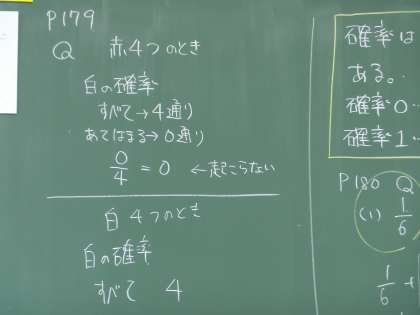 P179
Q 赤4つのとき
白の確率
すべて→4通り
あてはまる→0通り
0/4 = 0 ←起こらない
白4つのとき
白の確率
すべて 4
確率は
ある。
確率0…
確率1…
P180 Q
(1) 1/6
1/6 +